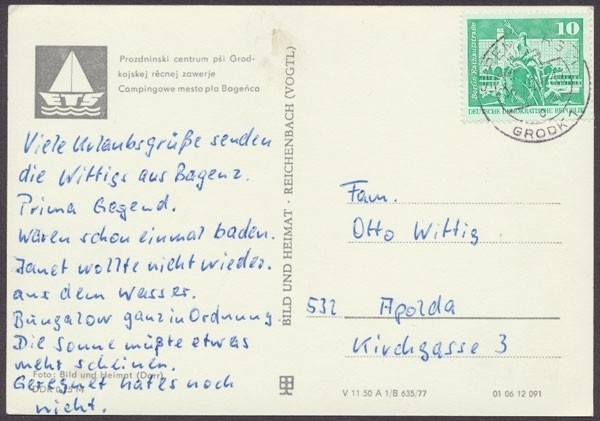 Prozdninski centrum pśi Grod-
kojskej rěcnej zawerje
Campingowe mesto pla Bageńca
ETS
Viele Urlaubsgrüße senden
die Wittigs aus Bagenz.
Prima Gegend.
Wären schon einmal baden.
Janet wollte nicht wieder.
aus dem Wasser.
Bungalow ganz in Ordnung
Die Sonne müßte etwas
mehr scheinen.
Geregnet hat es noch
nicht.
Foto: Bild und Heimat (Darr)
DDR 0,25 M
BILD UND HEIMAT · REICHENBACH (VOGTL)
10
Berlin, Rathausstraße
DEUTSCHE DEMOKRATISCHE REPUBLIK
GRODK
Fam.
Otto Wittig
532 Apolda
Kirchgasse 3
V 11 50 A 1/B 635/77
01 06 12 091